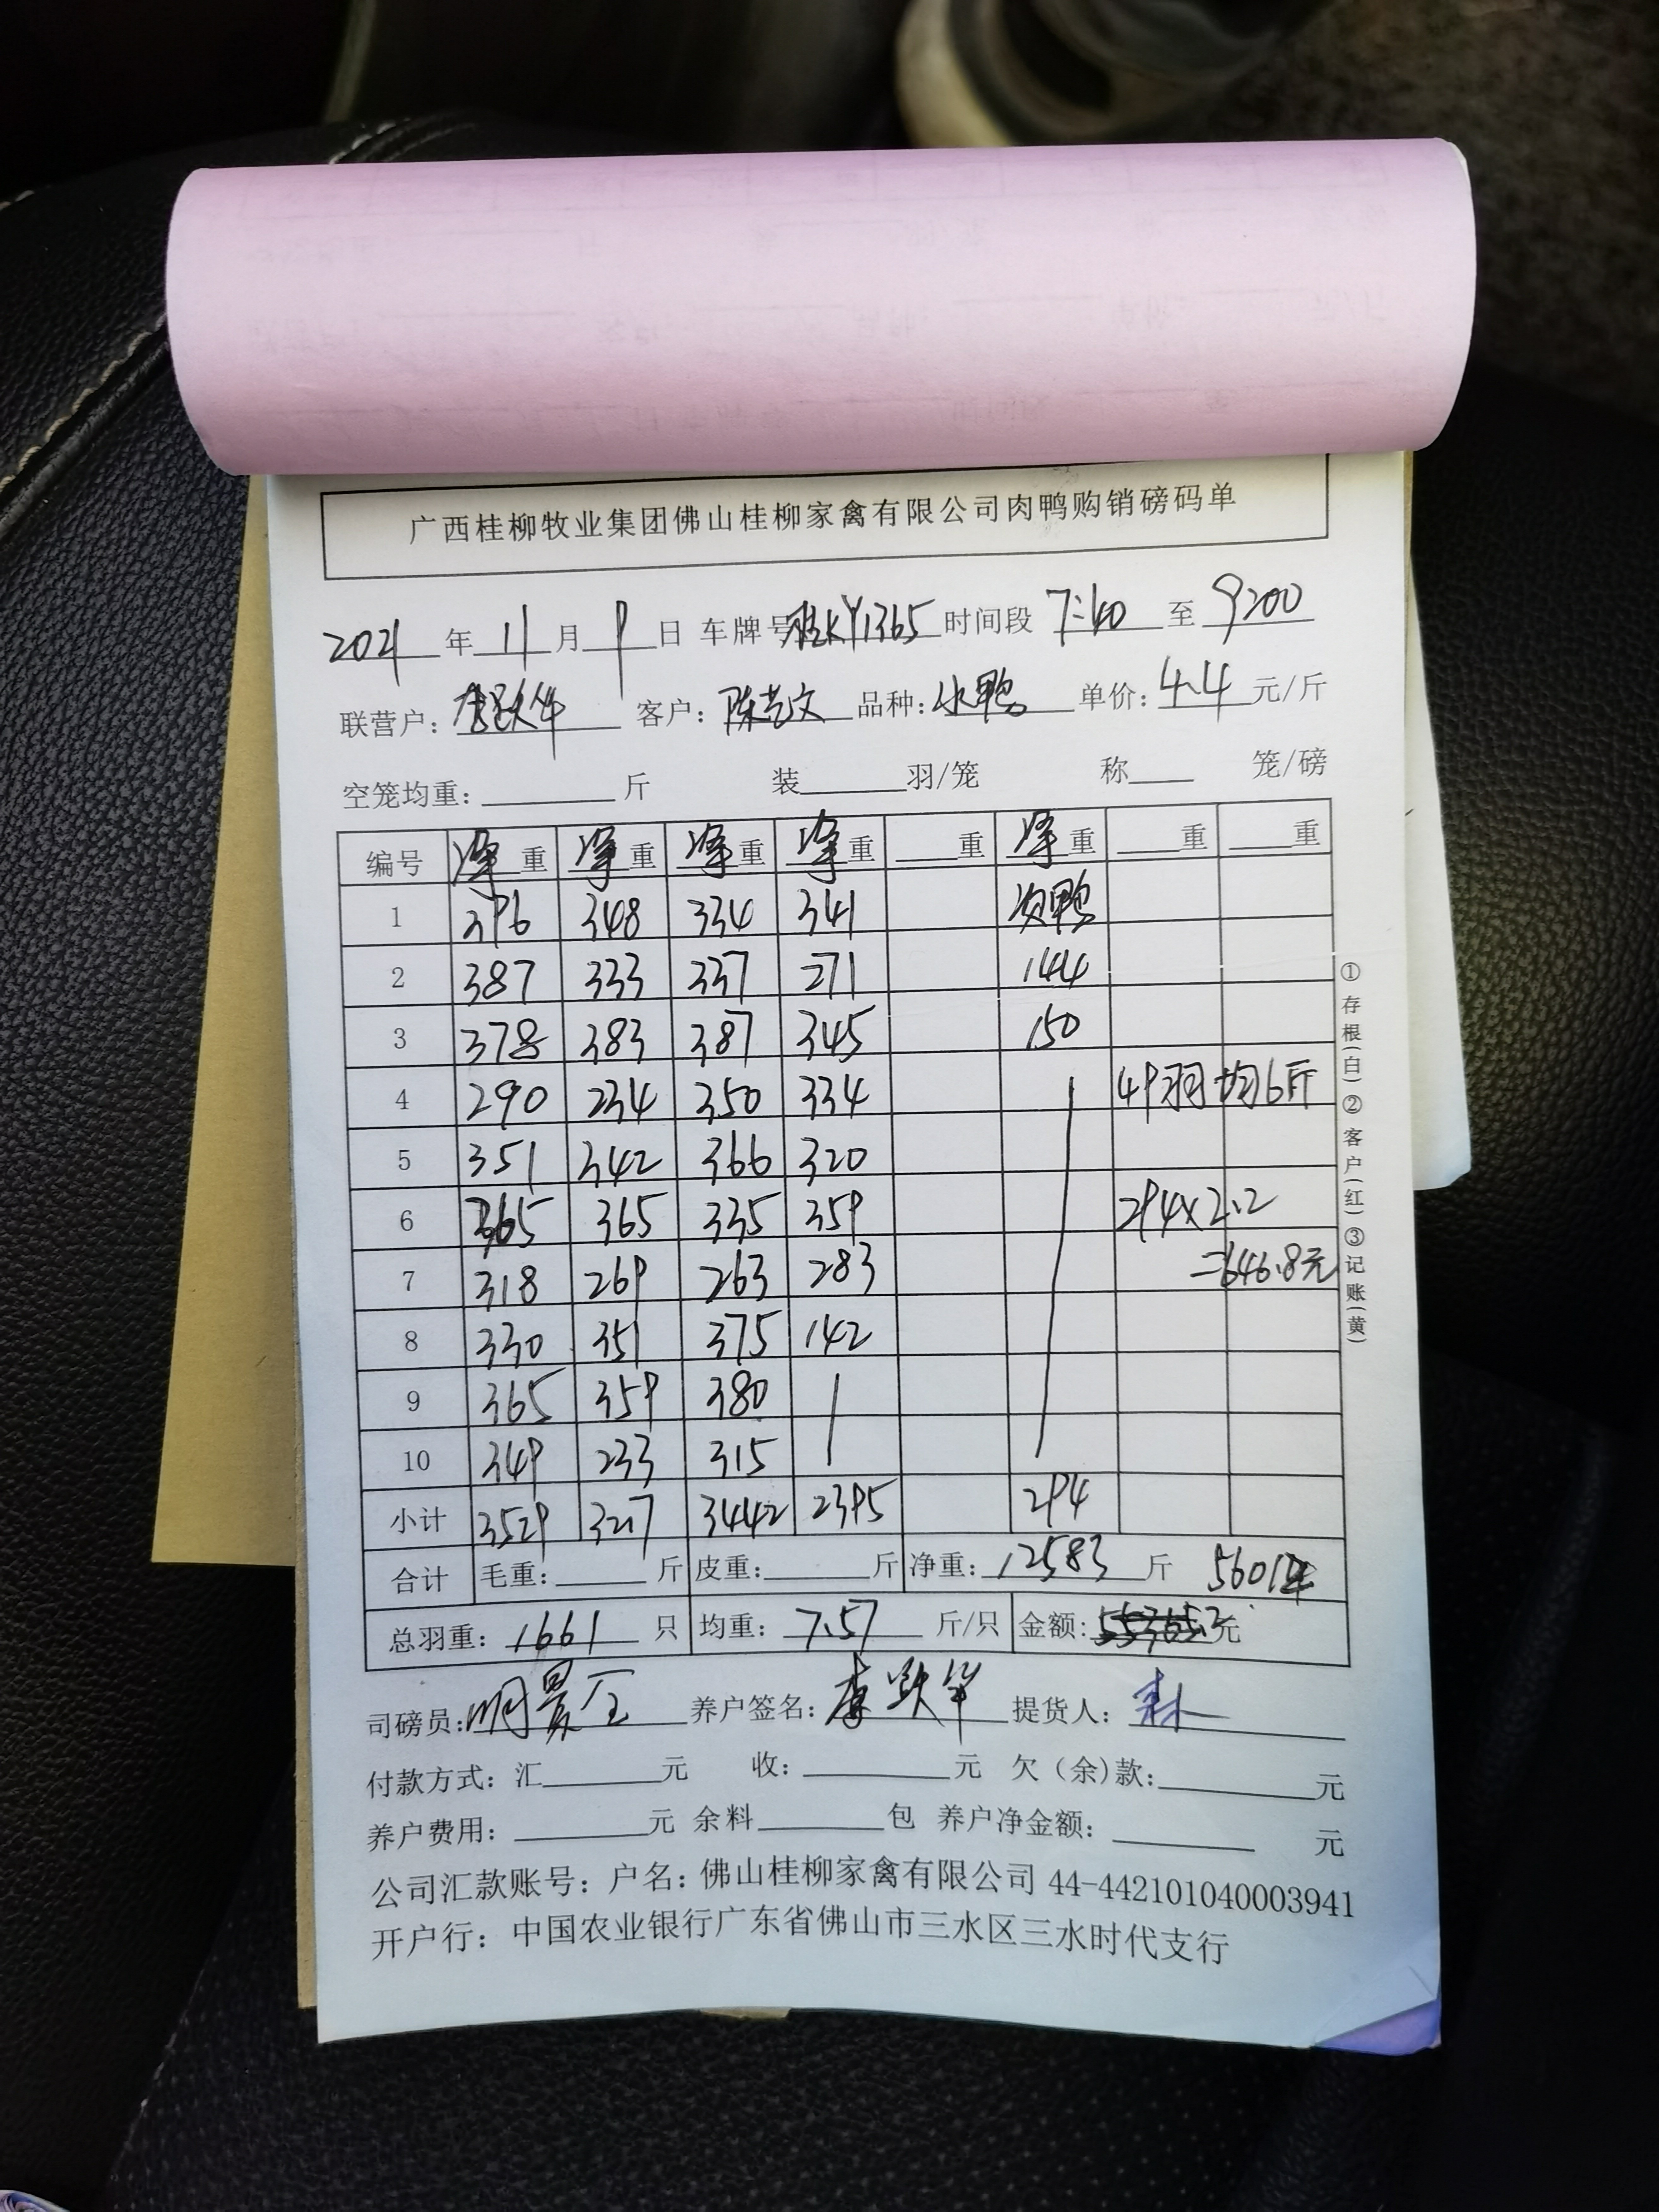 广西桂柳牧业集团佛山桂柳家禽有限公司肉鸭购销磅码单
2021年11月9日 车牌号 KY1365 时间段 7:40 至 9:00
联营户: 李跃华 客户: 陈艺文 品种: 水鸭 单价: 4.4 元/斤
空笼均重: 斤 装 羽/笼 称 笼/磅
编号 净重 净重 净重 净重 重 净重 重 重
1 396 348 334 341 次鸭
2 387 333 337 271 144
3 378 383 387 345 150
4 290 234 350 334 49羽 均6斤
5 351 342 366 320
6 365 365 335 359 294×2.2
7 318 269 263 283 =646.8元
8 330 351 375 142
9 365 359 380
10 349 233 315
小计 3529 3217 3442 2395 294
合计 毛重: 斤 皮重: 斤 净重: 12583 斤 56012
总羽重: 1661 只 均重: 7.57 斤/只 金额: 55365.2元
司磅员: 明景全 养户签名: 李跃华 提货人:
付款方式: 汇 元 收: 元 欠(余)款: 元
养户费用: 元 余料 包 养户净金额: 元
公司汇款账号: 户名: 佛山桂柳家禽有限公司 44-442101040003941
开户行: 中国农业银行广东省佛山市三水区三水时代支行
①存根(白)②客户(红)③记账(黄)